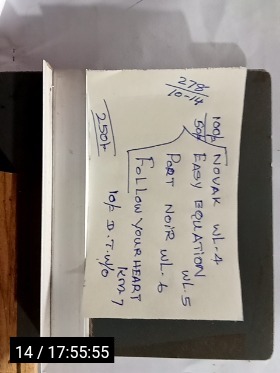 278/-
10-14
100/- NOVAK WL-4
50/- EASY EQUATION WL.5
PORT NOIR WL.6
FOLLOW YOUR HEART
250/-
10/- D.T.W/O
14 / 17:55:55